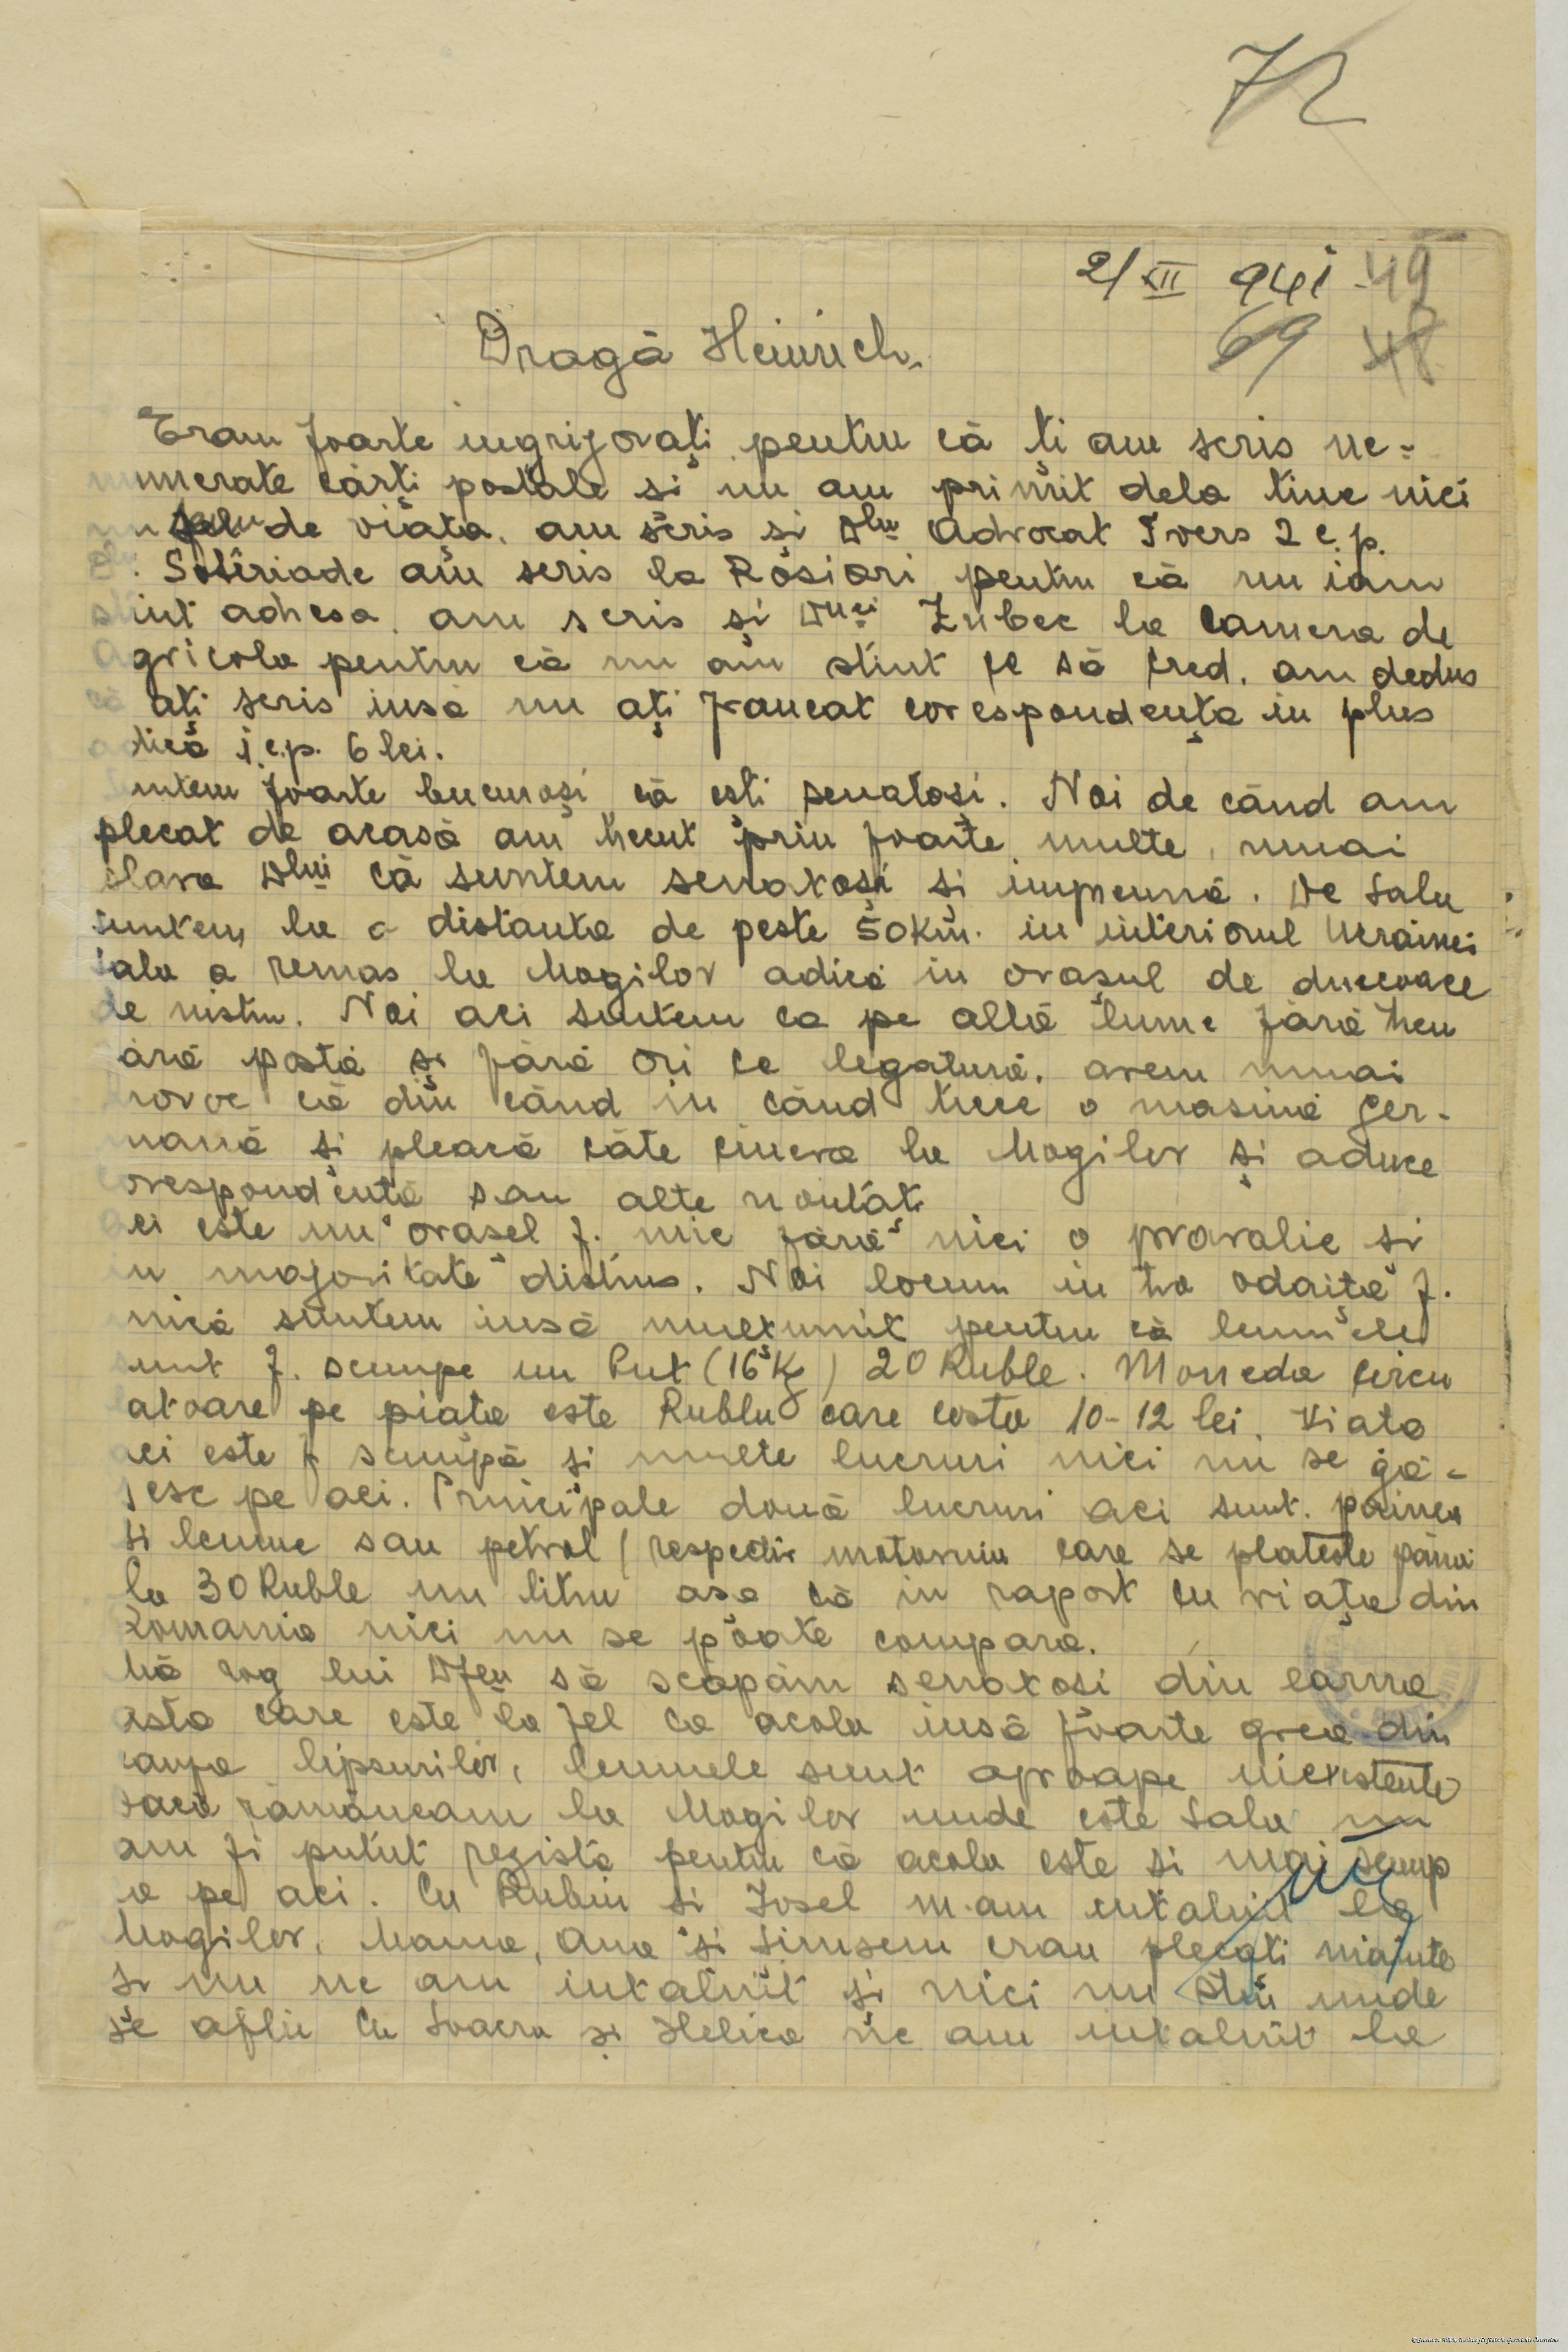 72
2/XII 941 49
69 48
Dragă Heinrich,
Eram foarte ingrijorați pentru că ți am scris ne-
numerate cărți postale si nu am primit dela tine nici
un semn de viața. am scris si Dlui Advocat Ivers 2 c.p.
Dlui. Sotiriade am scris la Rosiori pentru că nu iam
stiut adresa. am scris și Dnei Zubec la Camera de
Agricola pentru că nu am stiut ce să cred. am dedus
că ați scris insă nu ați francat corespondența in plus
adică 1 c.p. 6 lei.
Suntem foarte bucuroși că esti senatosi. Noi de când am
plecat de acasă am trecut prin foarte multe, numai
slava Dlui că suntem senatoși si impreună. De Salu
suntem la o distanta de peste 50 km. in interiorul Ucrainei
Salu a remas la Mogilov adică in orașul de dincoace
de nistru. Noi aci suntem ca pe altă lume fără tren
fără postă și fără ori ce legatură. avem numai
noroc că din când in când trece o masină ger-
mană și pleacă câte cineva la Mogilov și aduce
corespondență sau alte noutăți
aci este un orasel f. mic fără nici o pravalie si
in majoritate distrus. Noi locuim in tro odaiță f.
mică suntem insă mulțumit pentru că lemnele
sunt f. scumpe un Put (16 Kg) 20 Ruble. Moneda circu
latoare pe piata este Rublu care costa 10-12 lei. Viata
aci este f scumpă și multe lucruri nici nu se gă-
sesc pe aci. Principale două lucruri aci sunt. painea
si lemne sau petrol (respectiv motorniu care se plateste până
la 30 Ruble un litru asa că in raport cu viața din
Romania nici nu se poate compara.
Mă rog lui Dzeu să scăpăm senatosi din earna
asta care este la fel ca acolo insă foarte grea din
cauza lipsurilor, lemnele sunt aproape niexistente
dacă rămăneam la Mogilov unde este Salu nu
am fi putut rezista pentru că acolo este si mai scump
ca pe aci. Cu Rubin si Iosel m-am intalnit la
Mogilov, Mama, Ana si Simsem erau plecati nainte
si nu ne am intalnit și nici nu știu unde
se aflu Cu Soacra și Helica ne am intalnit la